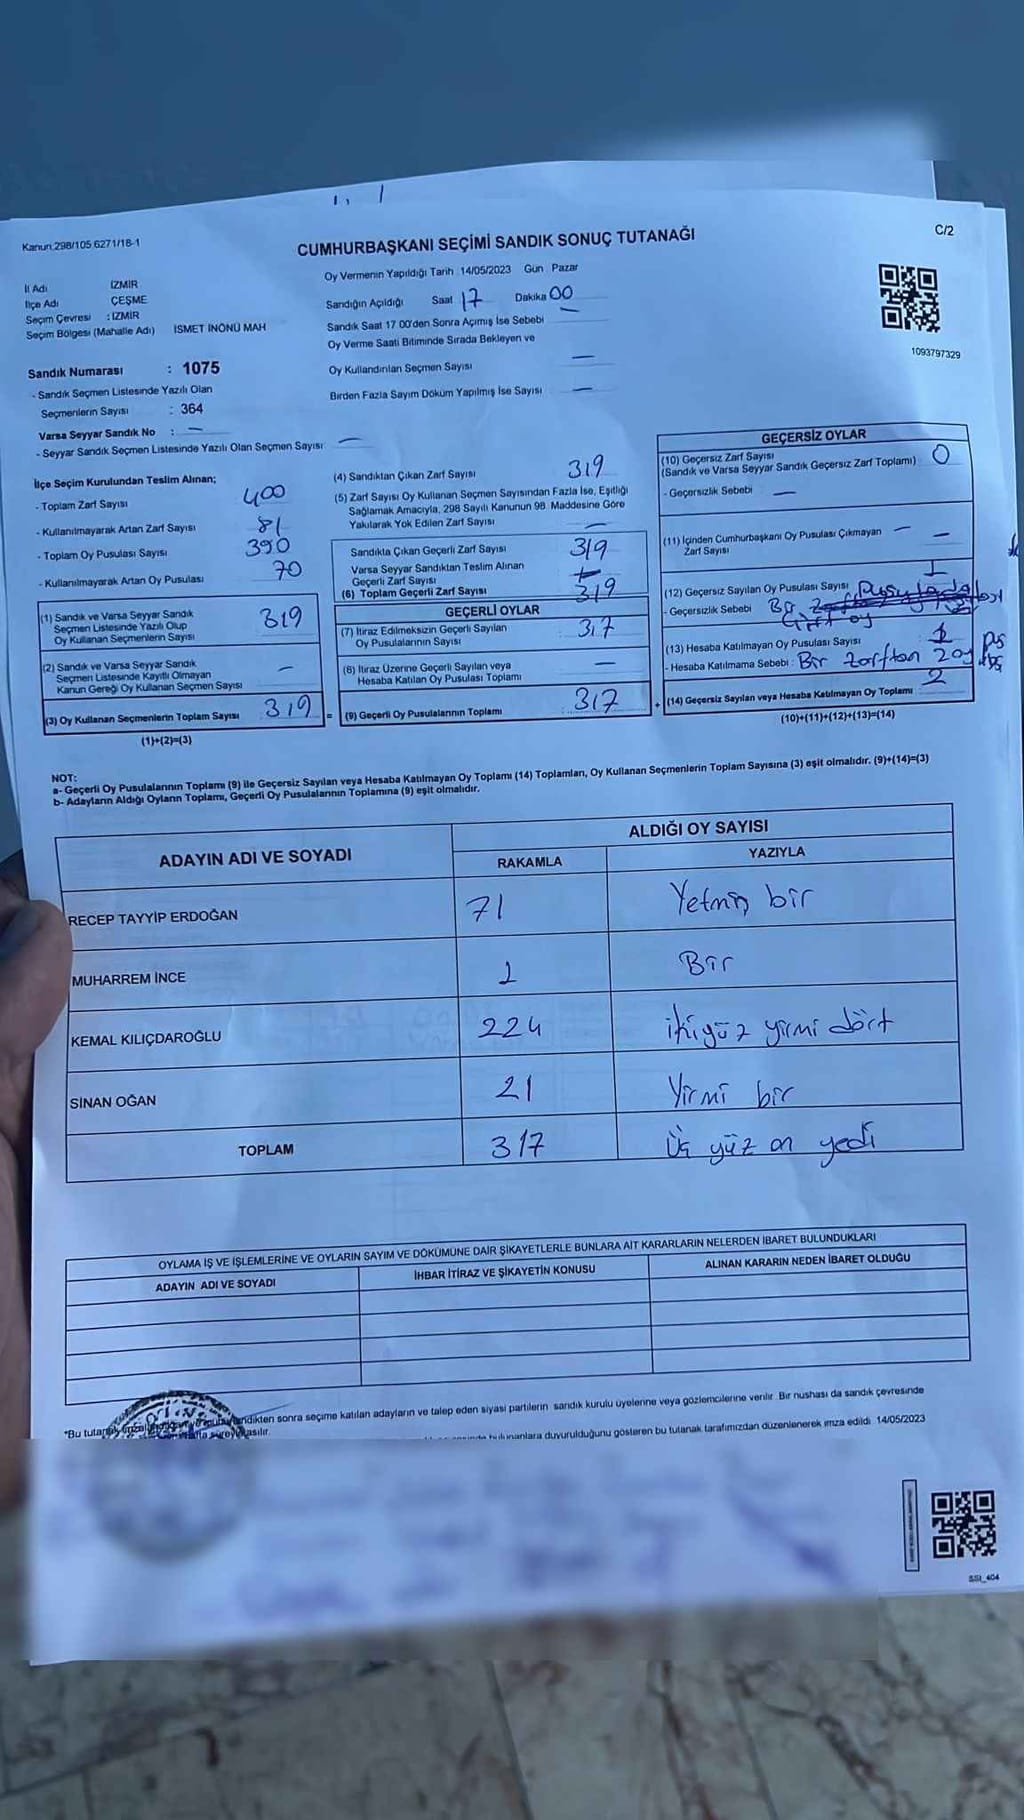 Kanun.298/105.6271/18-1
C/2
CUMHURBAŞKANI SEÇİMİ SANDIK SONUÇ TUTANAĞI
İl Adı İZMİR
İlçe Adı ÇEŞME
Seçim Çevresi : İZMİR
Seçim Bölgesi (Mahalle Adı) İSMET İNÖNÜ MAH
Oy Vermenin Yapıldığı Tarih 14/05/2023 Gün Pazar
Sandığın Açıldığı Saat 17 Dakika 00
Sandık Saat 17 00'den Sonra Açımış İse Sebebi —
Oy Verme Saati Bitiminde Sırada Bekleyen ve
Oy Kullandırılan Seçmen Sayısı —
Birden Fazla Sayım Döküm Yapılmış İse Sayısı —
1093797329
Sandık Numarası : 1075
- Sandık Seçmen Listesinde Yazılı Olan
Seçmenlerin Sayısı : 364
Varsa Seyyar Sandık No : —
- Seyyar Sandık Seçmen Listesinde Yazılı Olan Seçmen Sayısı —
İlçe Seçim Kurulundan Teslim Alınan;
- Toplam Zarf Sayısı 400
- Kullanılmayarak Artan Zarf Sayısı 81
- Toplam Oy Pusulası Sayısı 390
- Kullanılmayarak Artan Oy Pusulası 70
(1) Sandık ve Varsa Seyyar Sandık
Seçmen Listesinde Yazılı Olup
Oy Kullanan Seçmenlerin Sayısı 319
(2) Sandık ve Varsa Seyyar Sandık
Seçmen Listesinde Kayıtlı Olmayan
Kanun Gereği Oy Kullanan Seçmen Sayısı —
(3) Oy Kullanan Seçmenlerin Toplam Sayısı 319 =
(1)+(2)=(3)
(4) Sandıktan Çıkan Zarf Sayısı 319
(5) Zarf Sayısı Oy Kullanan Seçmen Sayısından Fazla İse, Eşitliği
Sağlamak Amacıyla, 298 Sayılı Kanunun 98 Maddesine Göre
Yakılarak Yok Edilen Zarf Sayısı —
Sandıkta Çıkan Geçerli Zarf Sayısı 319
Varsa Seyyar Sandıktan Teslim Alınan
Geçerli Zarf Sayısı
(6) Toplam Geçerli Zarf Sayısı 319
GEÇERLİ OYLAR
(7) İtiraz Edilmeksizin Geçerli Sayılan
Oy Pusulalarının Sayısı 317
(8) İtiraz Üzerine Geçerli Sayılan veya
Hesaba Katılan Oy Pusulası Toplamı —
(9) Geçerli Oy Pusulalarının Toplamı 317 +
GEÇERSİZ OYLAR
(10) Geçersiz Zarf Sayısı
(Sandık ve Varsa Seyyar Sandık Geçersiz Zarf Toplamı) 0
- Geçersizlik Sebebi —
(11) İçinden Cumhurbaşkanı Oy Pusulası Çıkmayan —
Zarf Sayısı —
(12) Geçersiz Sayılan Oy Pusulası Sayısı 1
- Geçersizlik Sebebi
(13) Hesaba Katılmayan Oy Pusulası Sayısı 1
- Hesaba Katılmama Sebebi : Bir zarftan 2 oy
(14) Geçersiz Sayılan veya Hesaba Katılmayan Oy Toplamı 2
(10)+(11)+(12)+(13)=(14)
NOT:
a- Geçerli Oy Pusulalarının Toplamı (9) ile Geçersiz Sayılan veya Hesaba Katılmayan Oy Toplamı (14) Toplamları, Oy Kullanan Seçmenlerin Toplam Sayısına (3) eşit olmalıdır. (9)+(14)=(3)
b- Adayların Aldığı Oyların Toplamı, Geçerli Oy Pusulalarının Toplamına (9) eşit olmalıdır.
ADAYIN ADI VE SOYADI ALDIĞI OY SAYISI
RAKAMLA YAZIYLA
RECEP TAYYİP ERDOĞAN 71 Yetmiş bir
MUHARREM İNCE 1 Bir
KEMAL KILIÇDAROĞLU 224 ikiyüz yirmi dört
SİNAN OĞAN 21 Yirmi bir
TOPLAM 317 Üç yüz on yedi
OYLAMA İŞ VE İŞLEMLERİNE VE OYLARIN SAYIM VE DÖKÜMÜNE DAİR ŞİKAYETLERLE BUNLARA AİT KARARLARIN NELERDEN İBARET BULUNDUKLARI
ADAYIN ADI VE SOYADI İHBAR İTİRAZ VE ŞİKAYETİN KONUSU ALINAN KARARIN NEDEN İBARET OLDUĞU
*Bu sonra seçime katılan adayların ve talep eden siyasi partilerin sandık kurulu üyelerine veya gözlemcilerine verilir. Bir nüshası da sandık çevresinde
duyurulduğunu gösteren bu tutanak tarafımızdan düzenlenerek imza edildi. 14/05/2023
SSI_404